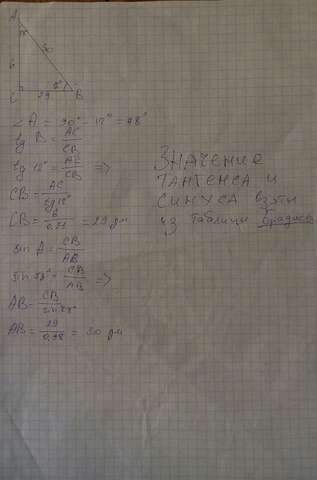 A
30
6
C 29 12° B
∠A = 90° - 12° = 78°
tg B = AC/CB
tg 12° = AC/CB =>
CB = AC/tg 12°
CB = 6/0,21 = 29 дм
sin A = CB/AB
sin 78° = CB/AB =>
AB = CB/sin 78°
AB = 29/0,98 = 30 дм
Значение
тангенса и
синуса взяты
из таблицы Брадиса